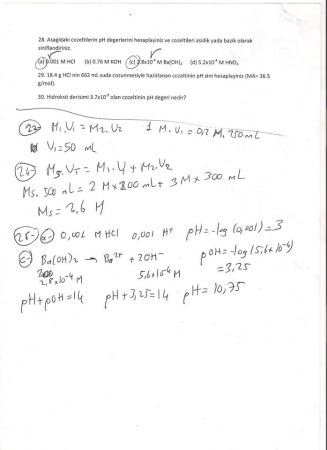 28. Asagidaki cozeltilerin pH degerlerini hesaplayiniz ve cozeltileri asidik yada bazik olarak
siniflandiriniz.
(a) 0.001 M HCl (b) 0.76 M KOH (c) 2.8x10⁻⁴ M Ba(OH)₂ (d) 5.2x10⁻⁴ M HNO₃
29. 18.4 g HCl nin 662 mL suda cozunmesiyle hazirlanan cozeltinin pH sini hesaplayiniz (MA= 36.5
g/mol).
30. Hidroksit derisimi 3.7x10⁻⁹ olan cozeltinin pH degeri nedir?
M₁.V₁ = M₂.V₂ 1 M.V₁ = 0,2 M, 250 mL
V₁ = 50 mL
M₁.V₁ + M₂.V₂
Ms. 500 mL = 2 M x 200 mL + 3 M x 300 mL
Ms = 2,6 M
a- 0,001 M HCl 0,001 H⁺ pH = -log (0,001) = 3
c- Ba(OH)₂ → Ba²⁺ + 2OH⁻ pOH = -log (5,6x10⁻⁴)
2,8x10⁻⁴ M 5,6x10⁻⁴ M = 3,25
pH + pOH = 14 pH + 3,25 = 14 pH = 10,75